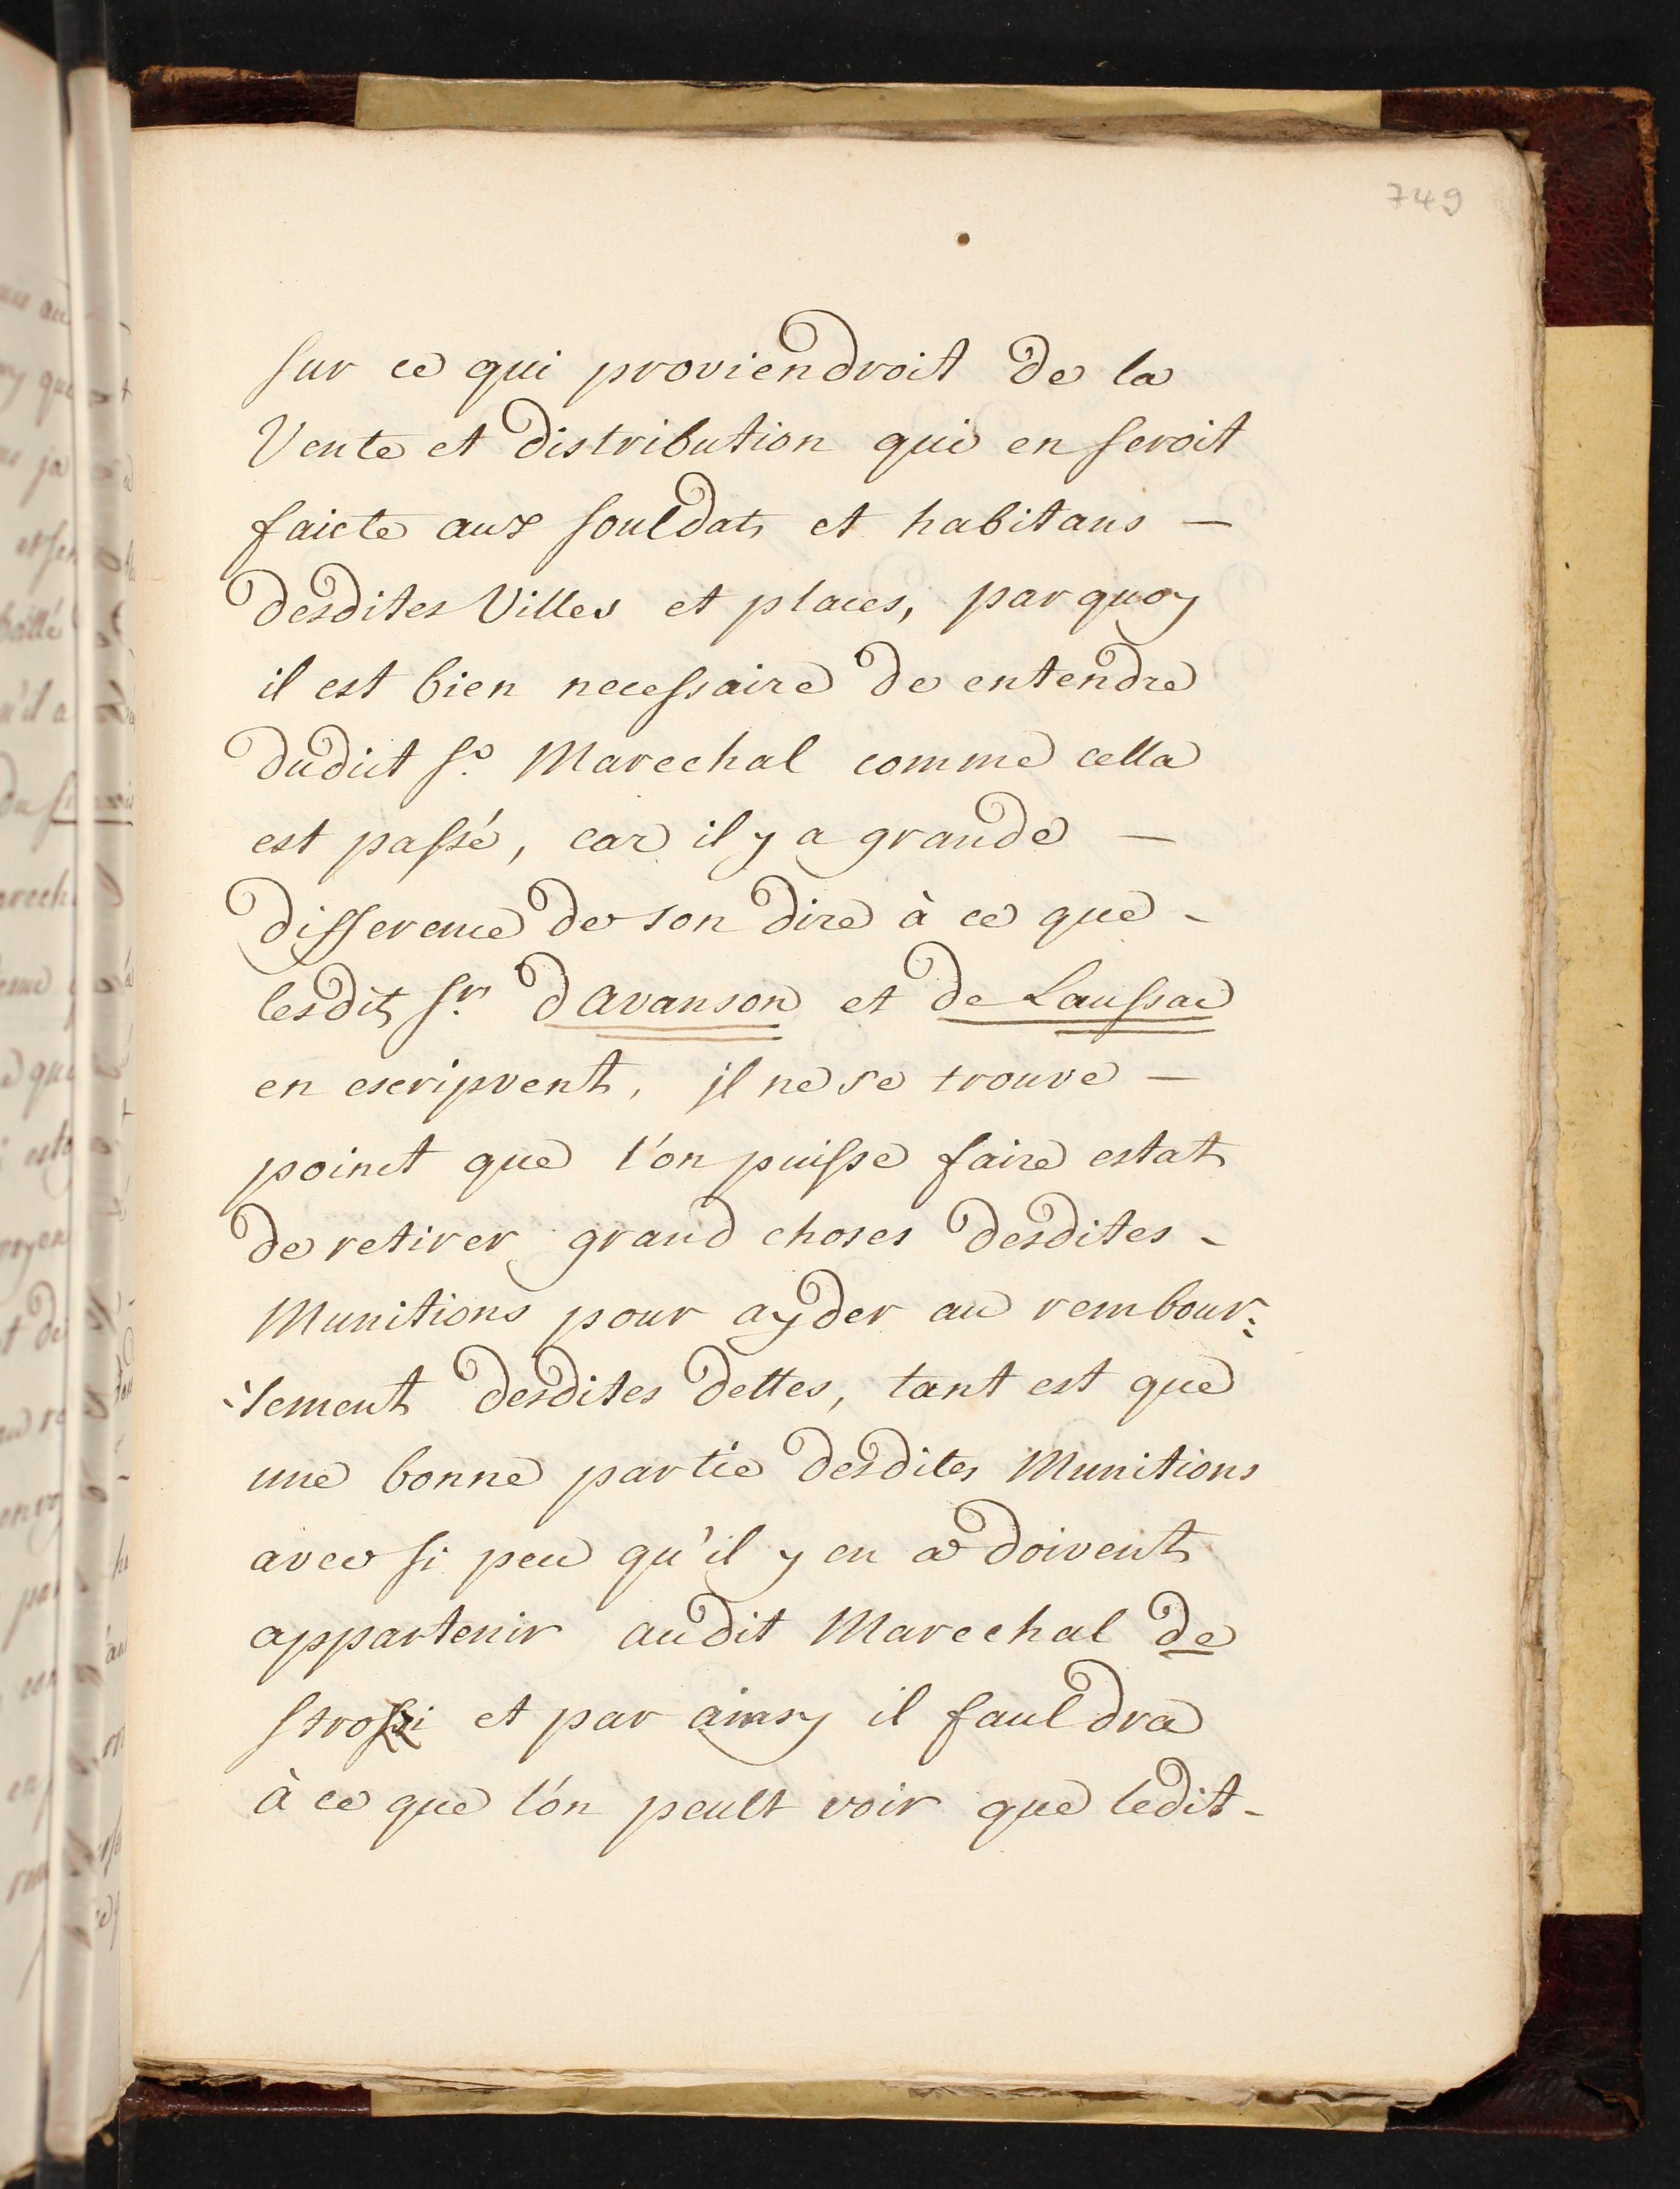 749
sur ce qui proviendroit de la
Vente et distribution qui en seroit
faicte aux souldats et habitans —
desdites Villes et places, par quoy
il est bien necessaire de entendre
dudict Sr. Marechal comme cella
est passé, car il y a grande —
difference de son dire à ce que -
lesdits Srs. d'Avanson et de Laussac
en escripvent, il ne se trouve —
poinct que l'on puisse faire estat
de retirer grand choses desdites -
Munitions pour ayder au rembour:
:sement desdites dettes, tant est que
une bonne partie desdites Munitions
avec si peu qu'il y en a doivent
appartenir audit Marechal de
Strozzi et par ainsy il fauldra
à ce que l'on peult voir que ledit -